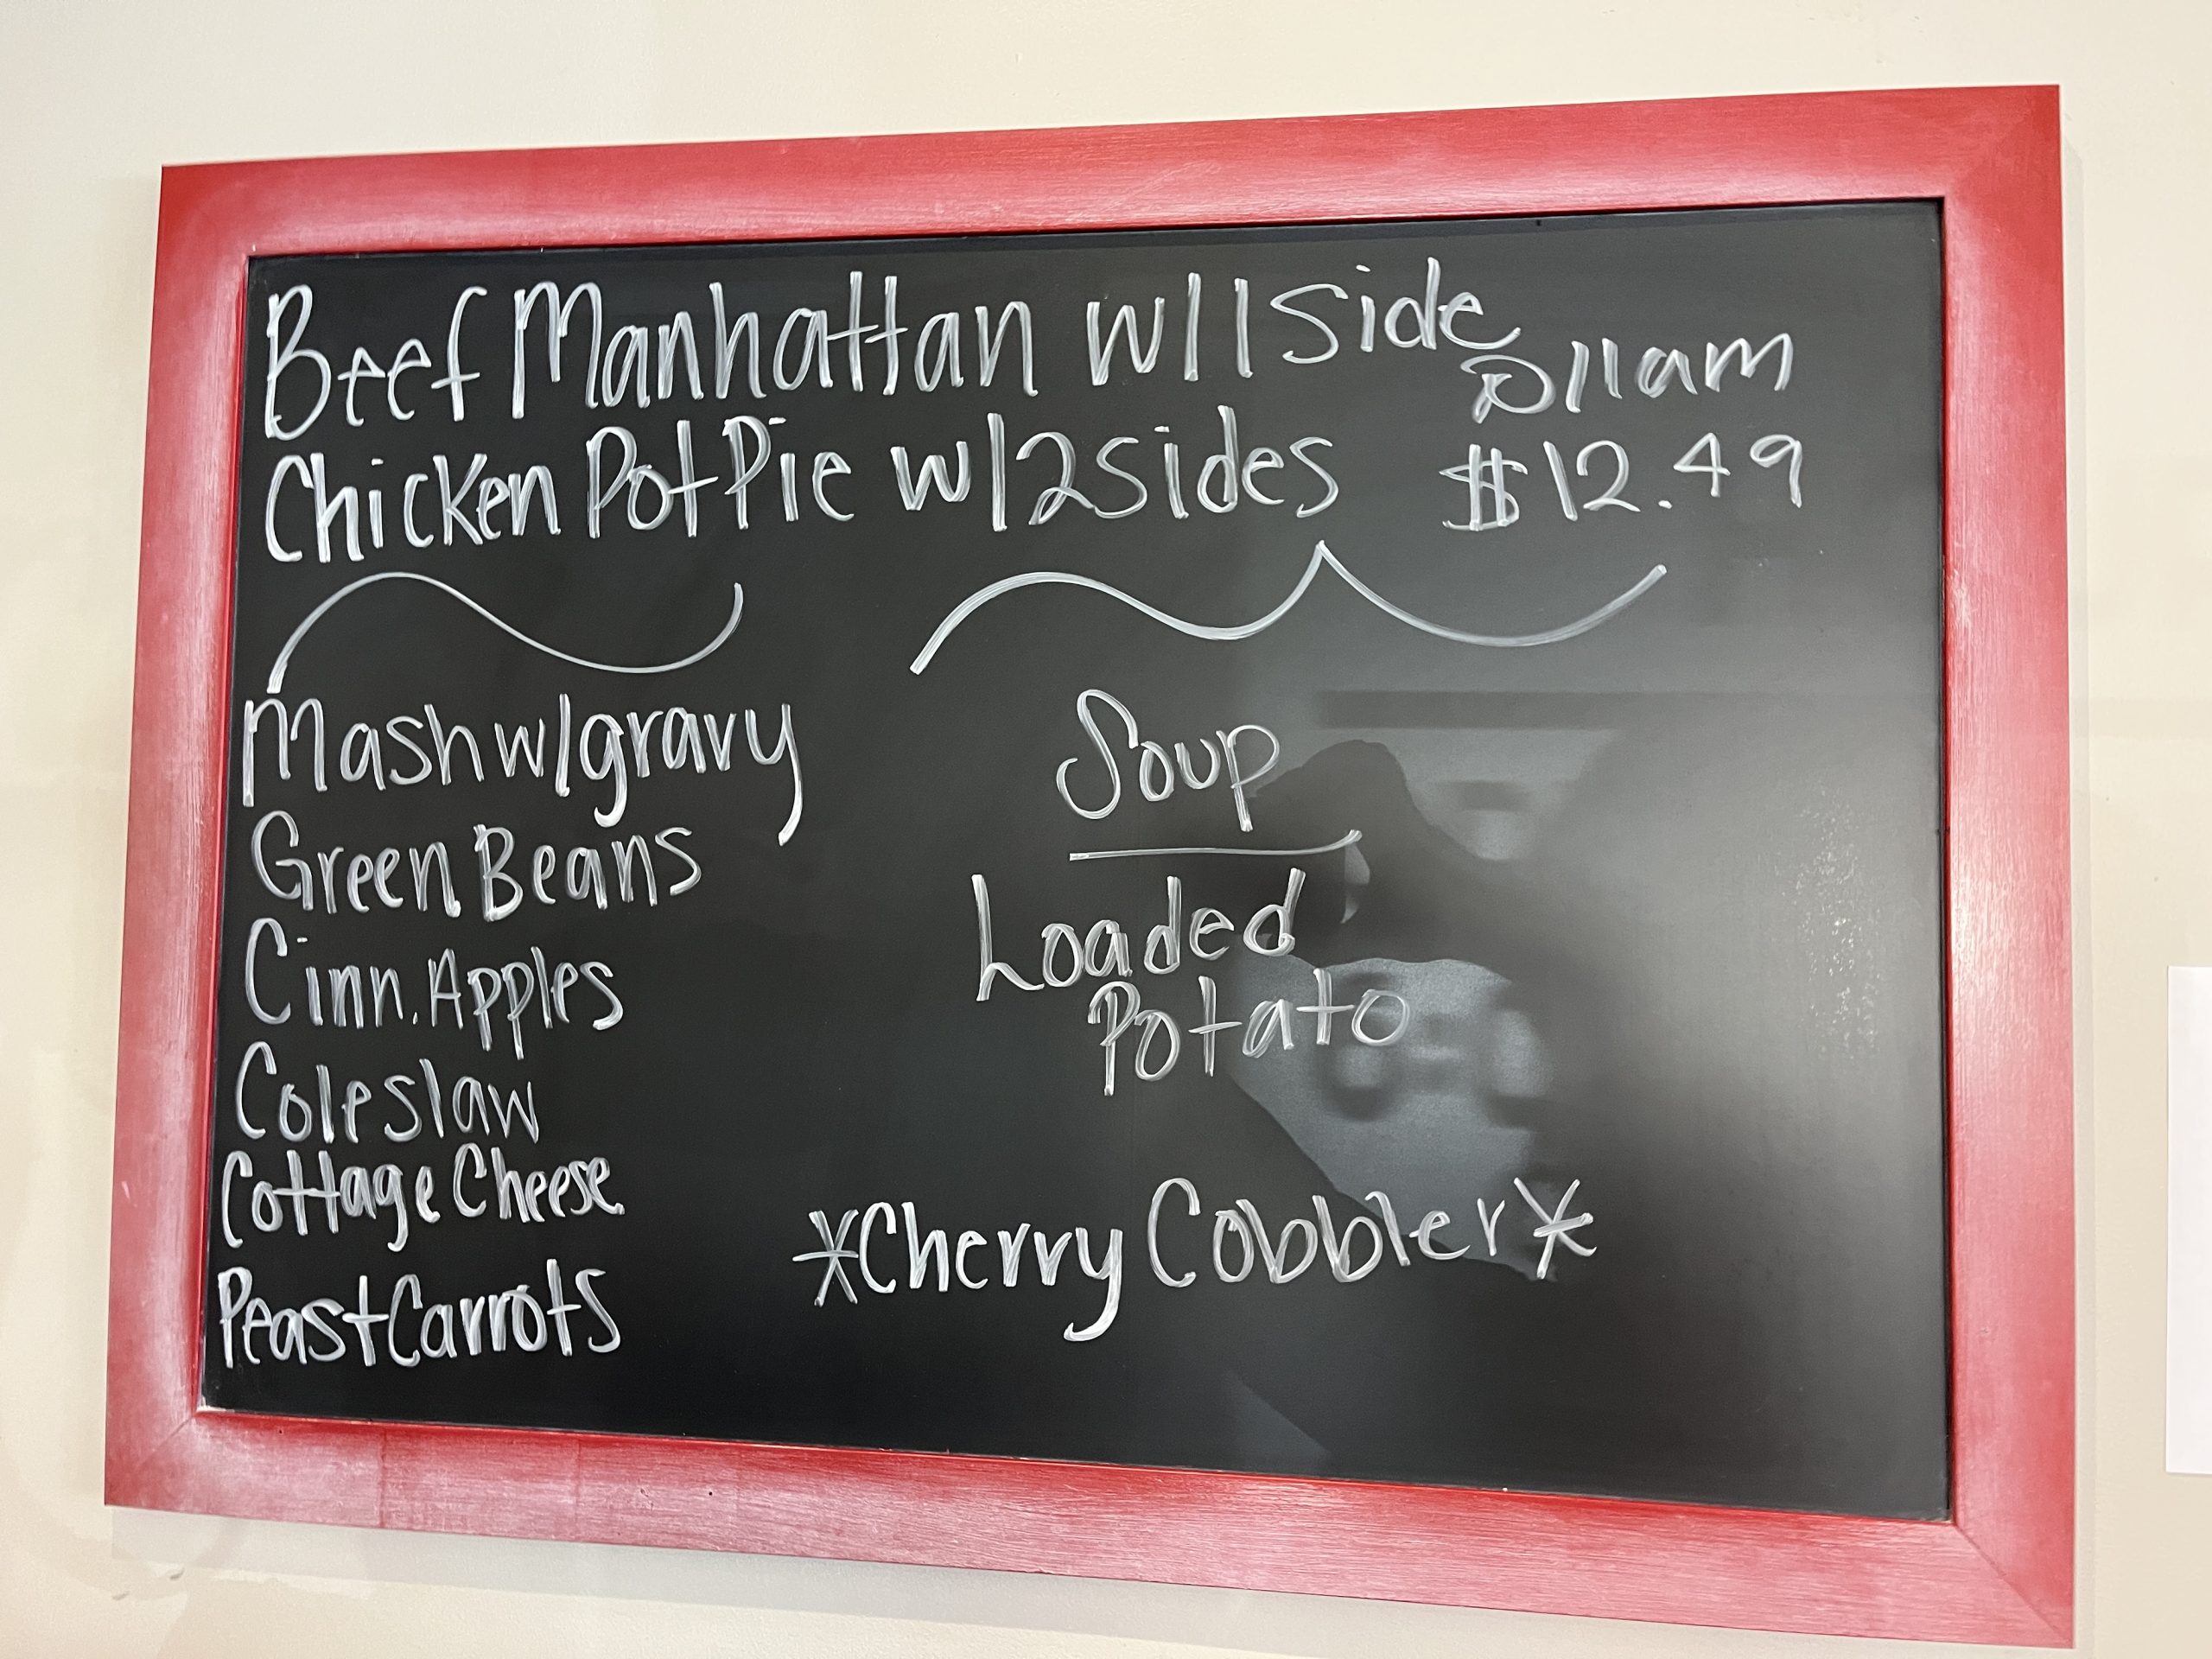 Beef Manhattan w/1 Side
@11am
Chicken Pot Pie w/2 sides $12.49
Mash w/gravy
Green Beans
Cinn. Apples
Coleslaw
Cottage Cheese
Peas+Carrots
Soup
Loaded
Potato
*Cherry Cobbler*